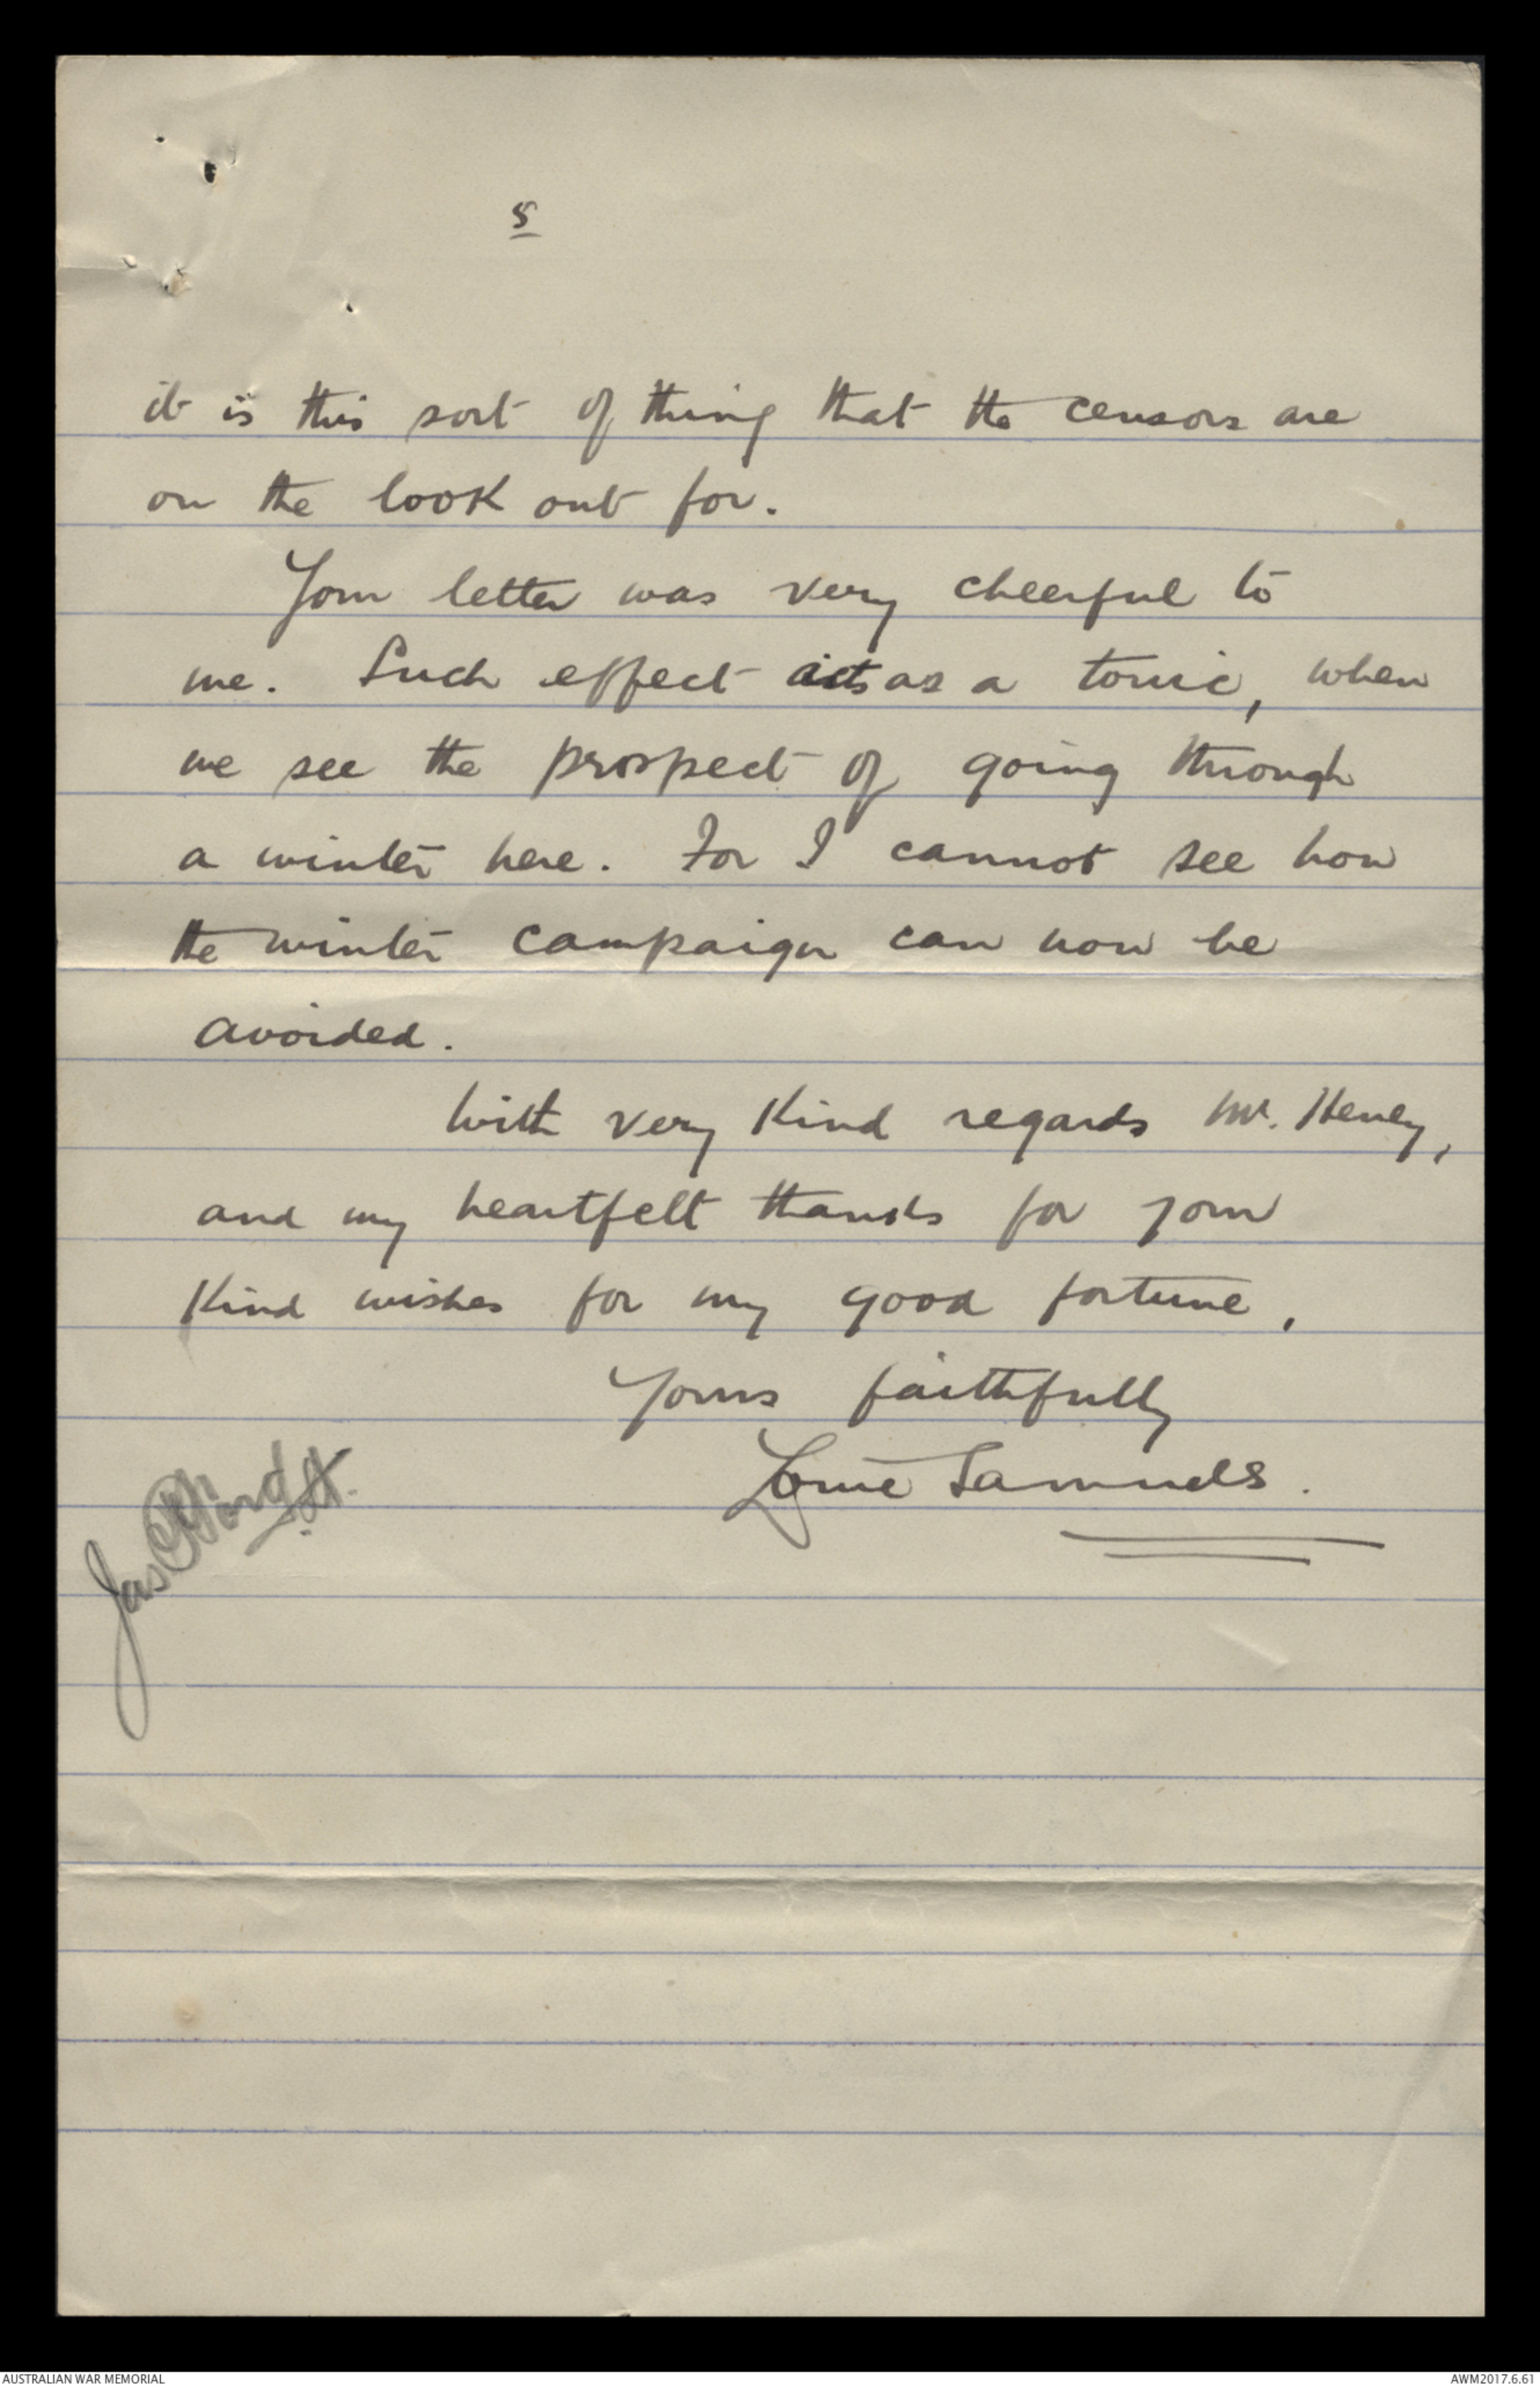 5
it is this sort of thing that the censors are
on the look out for.
Your letter was very cheerful to
me. Such effect acts as a tonic, when
we see the prospect of going through
a winter here. For I cannot see how
the winter campaign can now be
avoided.
With very kind regards Mr. Henley,
and my heartfelt thanks for your
kind wishes for my good fortune,
Yours faithfully
Samuels.
Jas
AUSTRALIAN WAR MEMORIAL
AWM2017.6.61